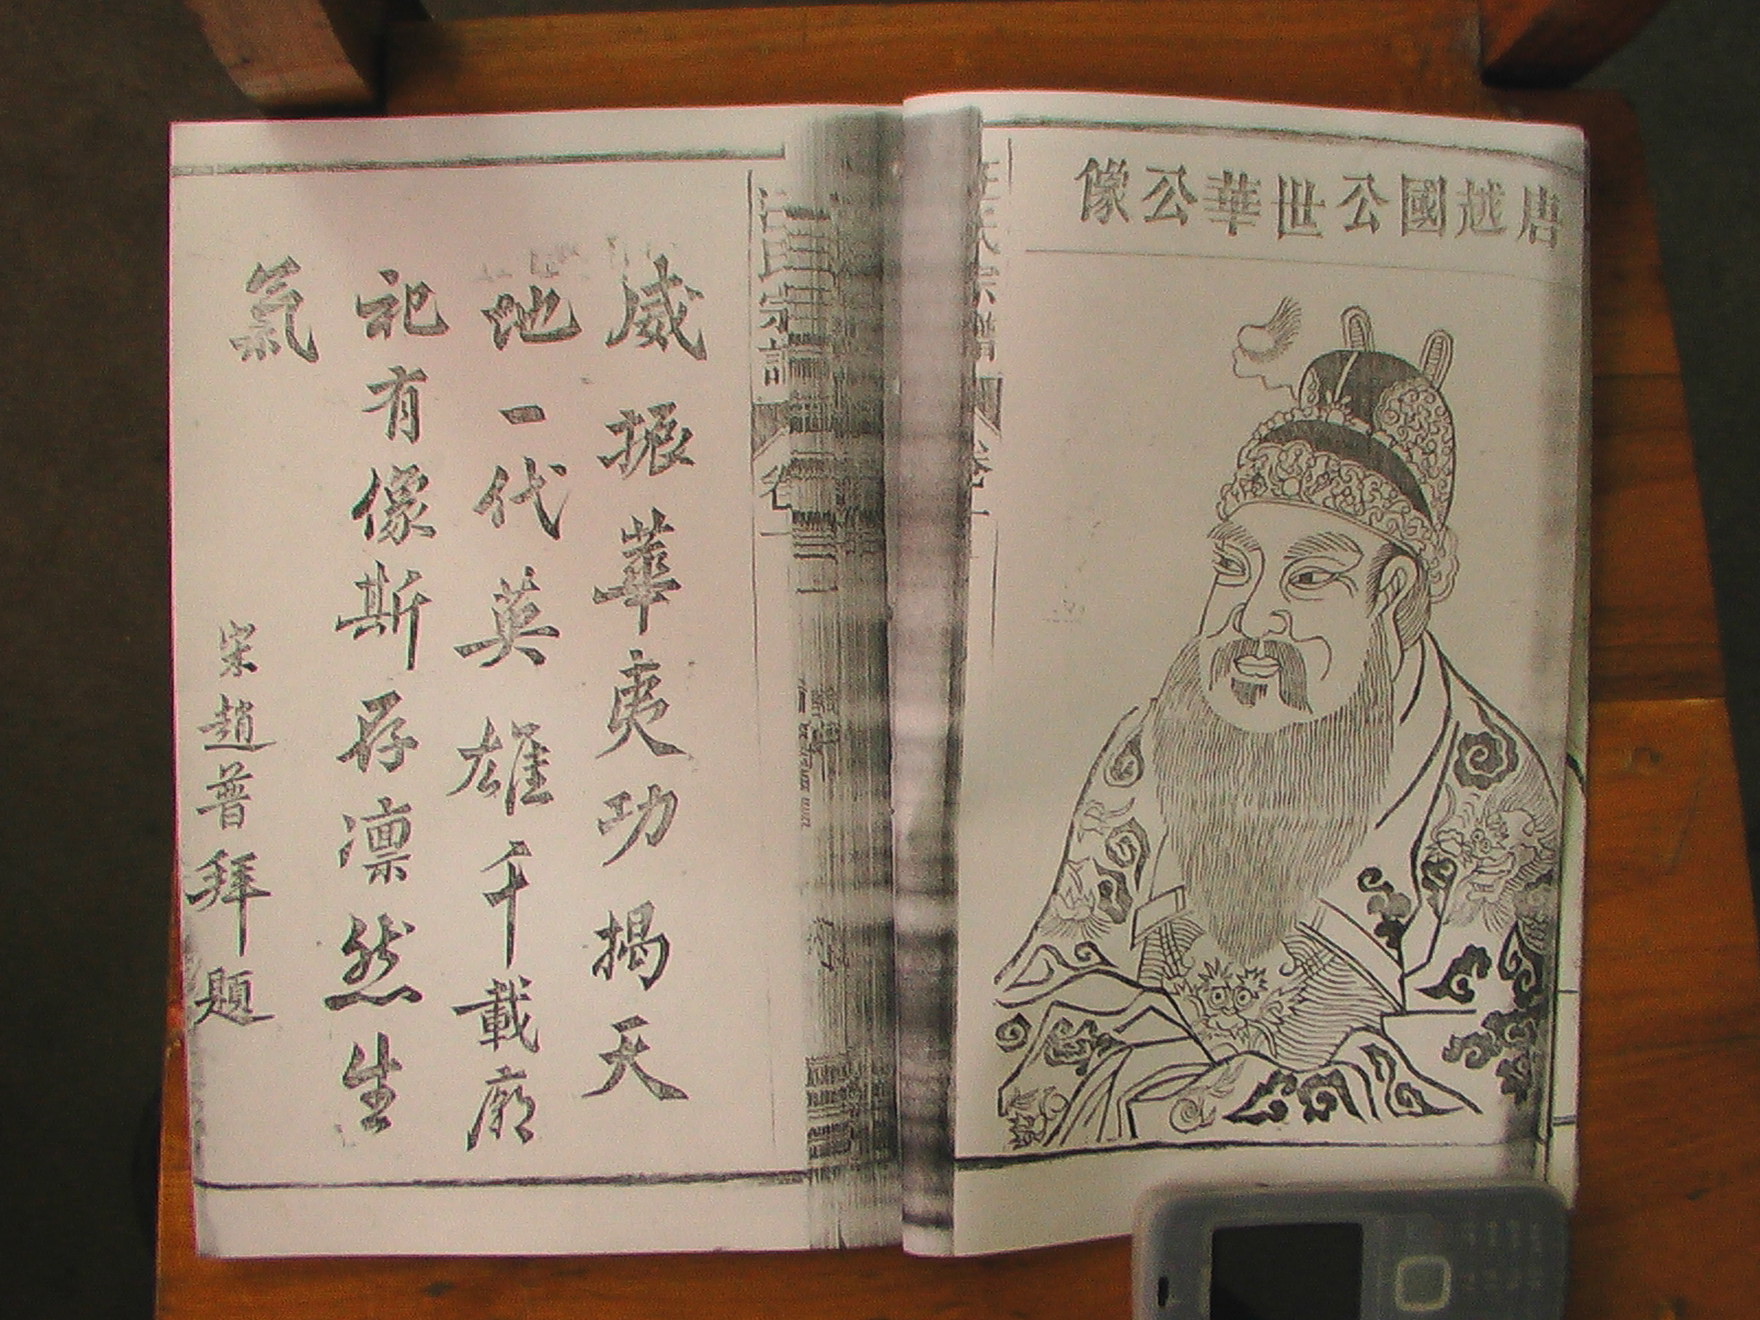 唐越國公世華公像
汪氏宗譜
卷一
威振華夷功揭天
地一代英雄千載廟
祀有像斯存凛然生
氣
宋趙普拜題